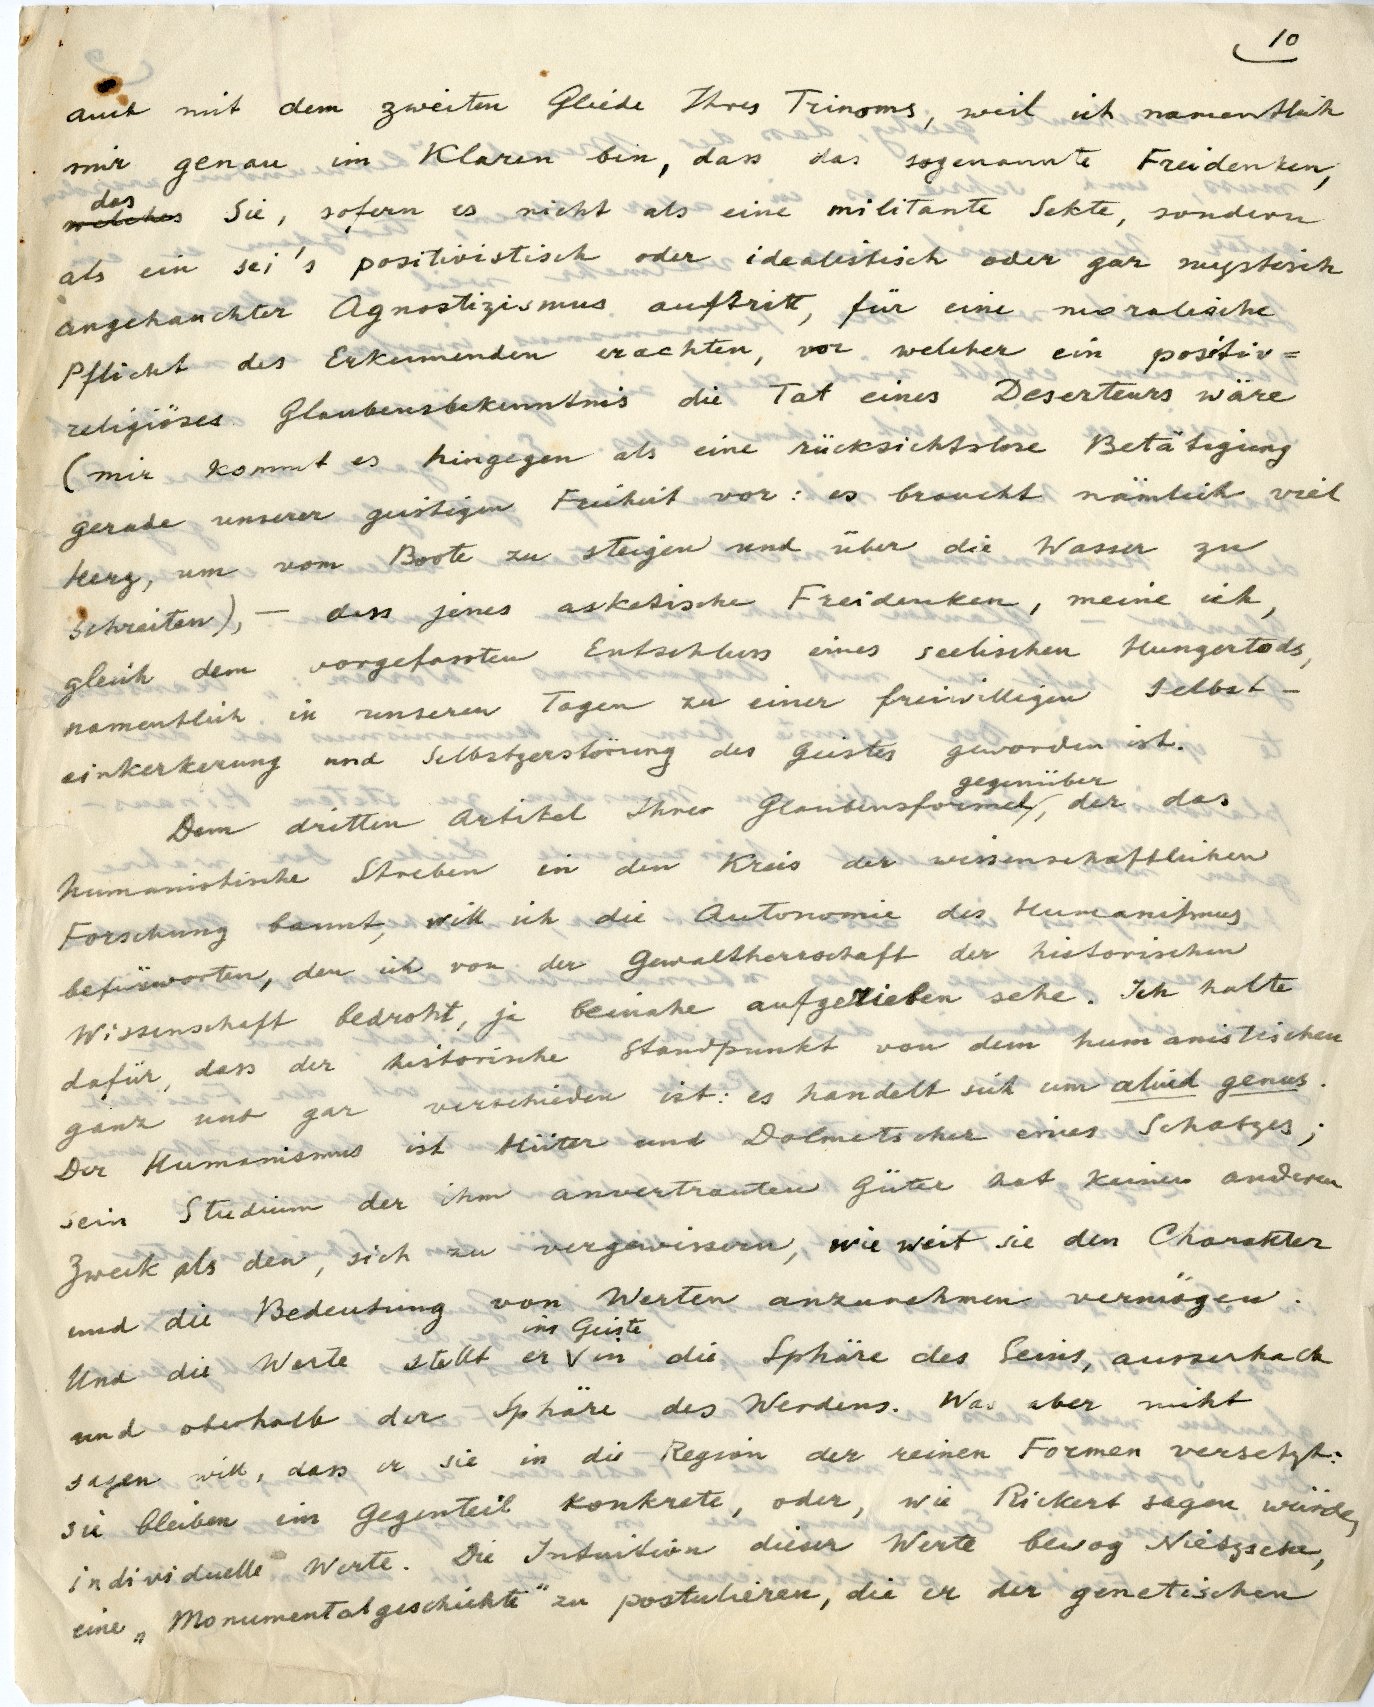 10
auch mit dem zweiten Gliede Ihres Trinoms, weil ich namentlich
mir genau im Klaren bin, dass das sogenannte Freidenken,
das
welches Sie, sofern es nicht als eine militante Sekte, sondern
als ein sei's positivistisch oder idealistisch oder gar mystisch
angehauchter Agnostizismus auftritt, für eine moralische
Pflicht des Erkennenden erachten, vor welcher ein positiv=
religiöses Glaubensbekenntnis die Tat eines Deserteurs wäre
(mir kommt es hingegen als eine rücksichtslose Betätigung
gerade unserer geistigen Freiheit vor: es braucht nämlich viel
Herz, um vom Boote zu steigen und über die Wasser zu
schreiten), — dass jenes asketische Freidenken, meine ich,
gleich dem vorgefassten Entschluss eines seelischen Hungertods,
namentlich in unseren Tagen zu einer freiwilligen Selbst-
einkerkerung und Selbstzerstörung des Geistes geworden ist.
gegenüber
Dem dritten Artikel Ihrer Glaubensformel, der das
humanistische Streben in den Kreis der wissenschaftlichen
Forschung bannt, will ich die Autonomie des Humanismus
befürworten, den ich von der Gewaltherrschaft der historischen
Wissenschaft bedroht, ja beinahe aufgerieben sehe. Ich halte
dafür, dass der historische Standpunkt von dem humanistischen
ganz und gar verschieden ist: es handelt sich um aliud genus.
Der Humanismus ist Hüter und Dolmetscher eines Schatzes;
sein Studium der ihm anvertrauten Güter hat keinen anderen
Zweck als den, sich zu vergewissern, wie weit sie den Charakter
und die Bedeutung von Werten anzunehmen vermögen.
im Geiste
Und die Werte stellt er V in die Sphäre des Seins, ausserhalb
und oberhalb der Sphäre des Werdens. Was aber nicht
sagen will, dass er sie in die Region der reinen Formen versetzt:
sie bleiben im Gegenteil konkrete, oder, wie Rickert sagen würde,
individuelle Werte. Die Intuition dieser Werte bewog Nietzsche,
eine „Monumentalgeschichte" zu postulieren, die er der genetischen